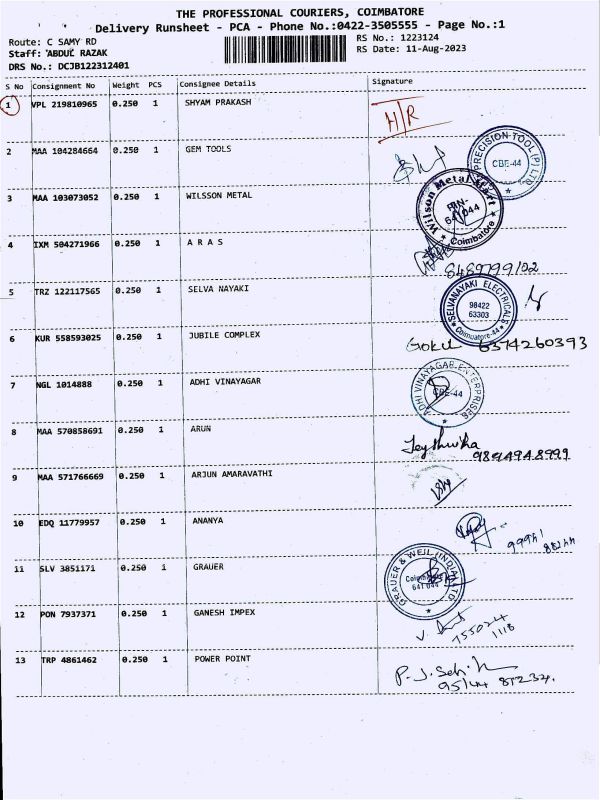 THE PROFESSIONAL COURIERS, COIMBATORE
Delivery Runsheet - PCA - Phone No.:0422-3505555 - Page No.:1
Route: C SAMY RD
Staff: ABDUL RAZAK
DRS No.: DCJB122312401
RS No.: 1223124
RS Date: 11-Aug-2023
S No Consignment No Weight PCS Consignee Details Signature
1 VPL 219810965 0.250 1 SHYAM PRAKASH H/R
2 MAA 104284664 0.250 1 GEM TOOLS
PRECISION TOOL (P) LTD
CBE-44
3 MAA 103073052 0.250 1 WILSSON METAL
Wilson Metal Mart
PIN-
641 044
Coimbatore
4 IXM 504271966 0.250 1 A R A S
5 TRZ 122117565 0.250 1 SELVA NAYAKI
SELVANAYAKI ELECTRICALS
98422
63303
Coimbatore-44
6 KUR 558593025 0.250 1 JUBILE COMPLEX
Gokul 6374260393
7 NGL 1014888 0.250 1 ADHI VINAYAGAR
ADHI VINAYAGAR ENTERPRISES
CBE-44
8 MAA 570858691 0.250 1 ARUN
9894948999
9 MAA 571766669 0.250 1 ARJUN AMARAVATHI
10 EDQ 11779957 0.250 1 ANANYA
11 SLV 3851171 0.250 1 GRAUER
GRAUER & WEIL (INDIA) LTD
Coimbatore
641 044
12 PON 7937371 0.250 1 GANESH IMPEX
755024
1118
13 TRP 4861462 0.250 1 POWER POINT